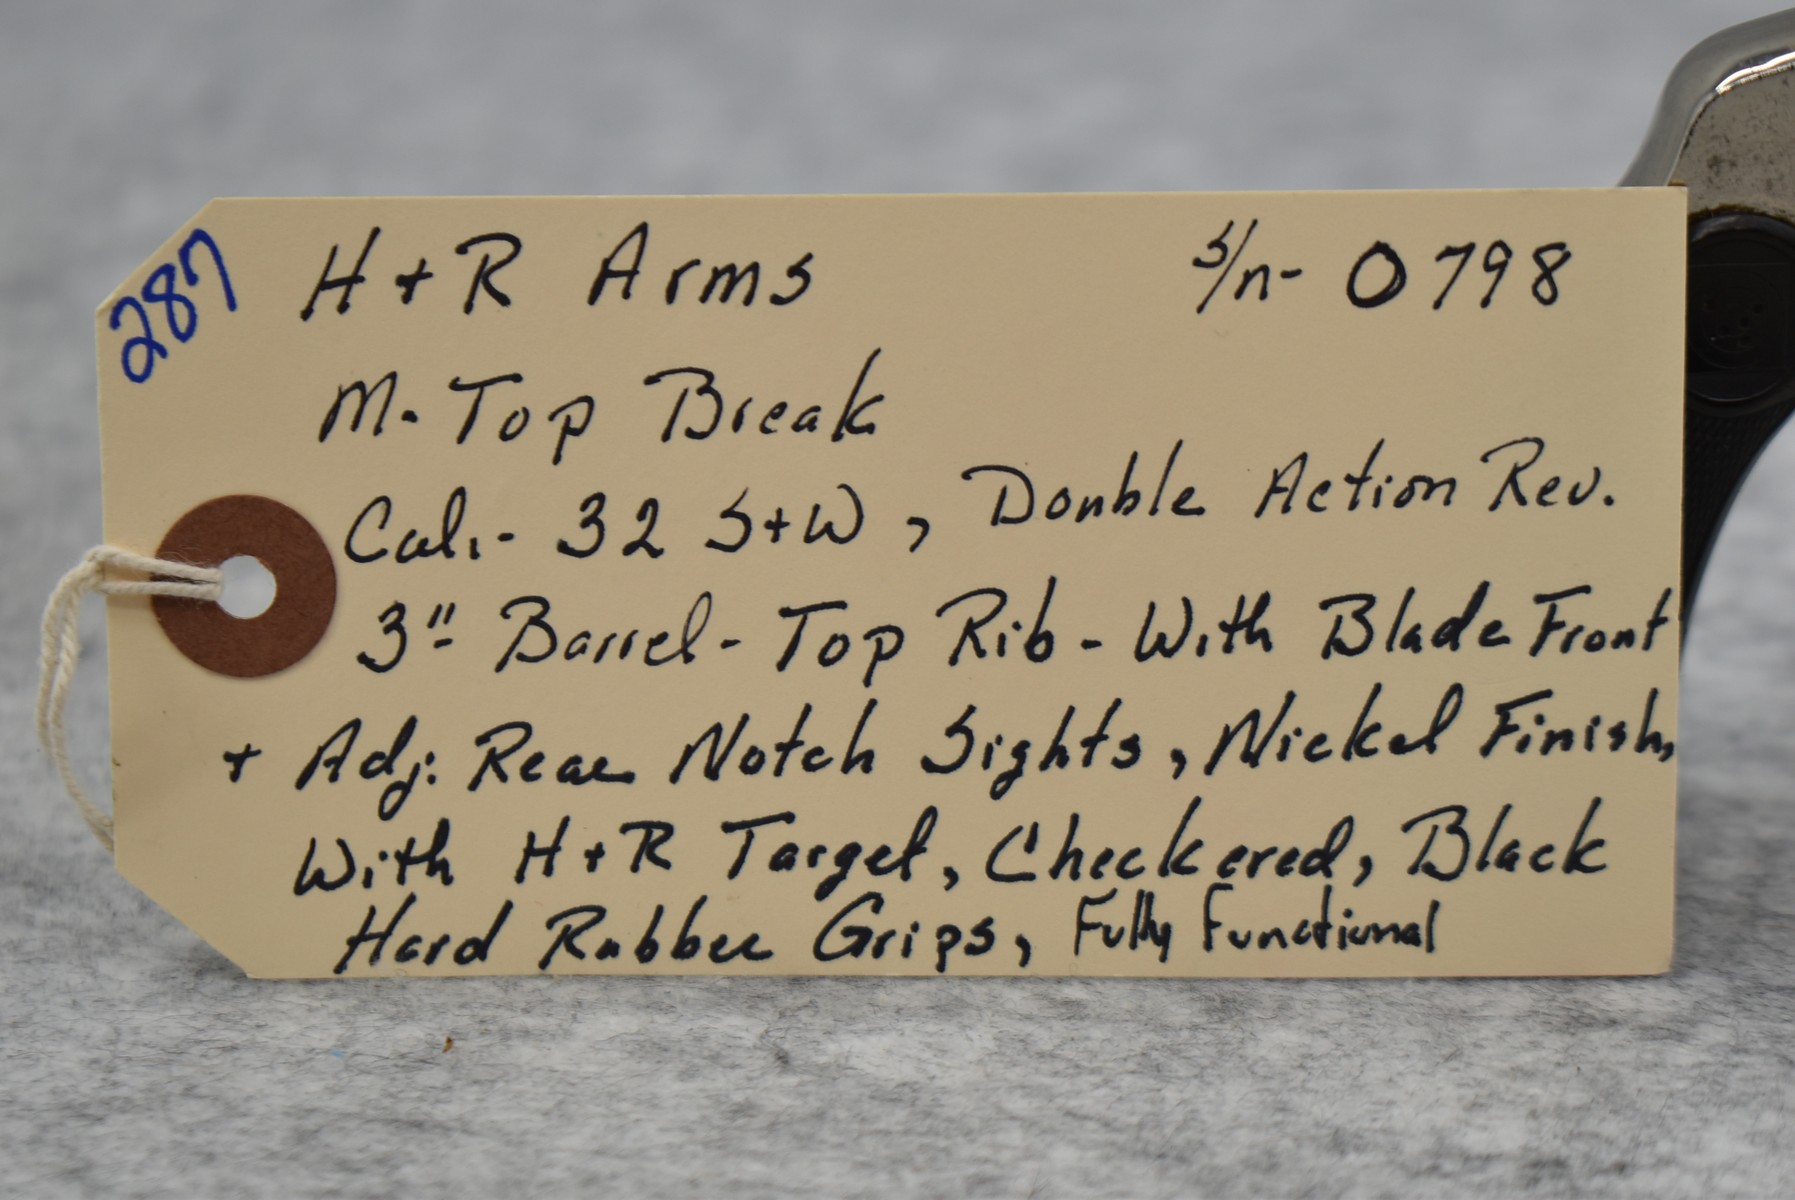 287
H+R Arms S/n- 0798
M. Top Break
Cal.- 32 S+W, Double Action Rev.
3"- Barrel - Top Rib - With Blade Front
+ Adj. Rear Notch Sights, Nickel Finish,
With H+R Target, Checkered, Black
Hard Rubber Grips, Fully Functional